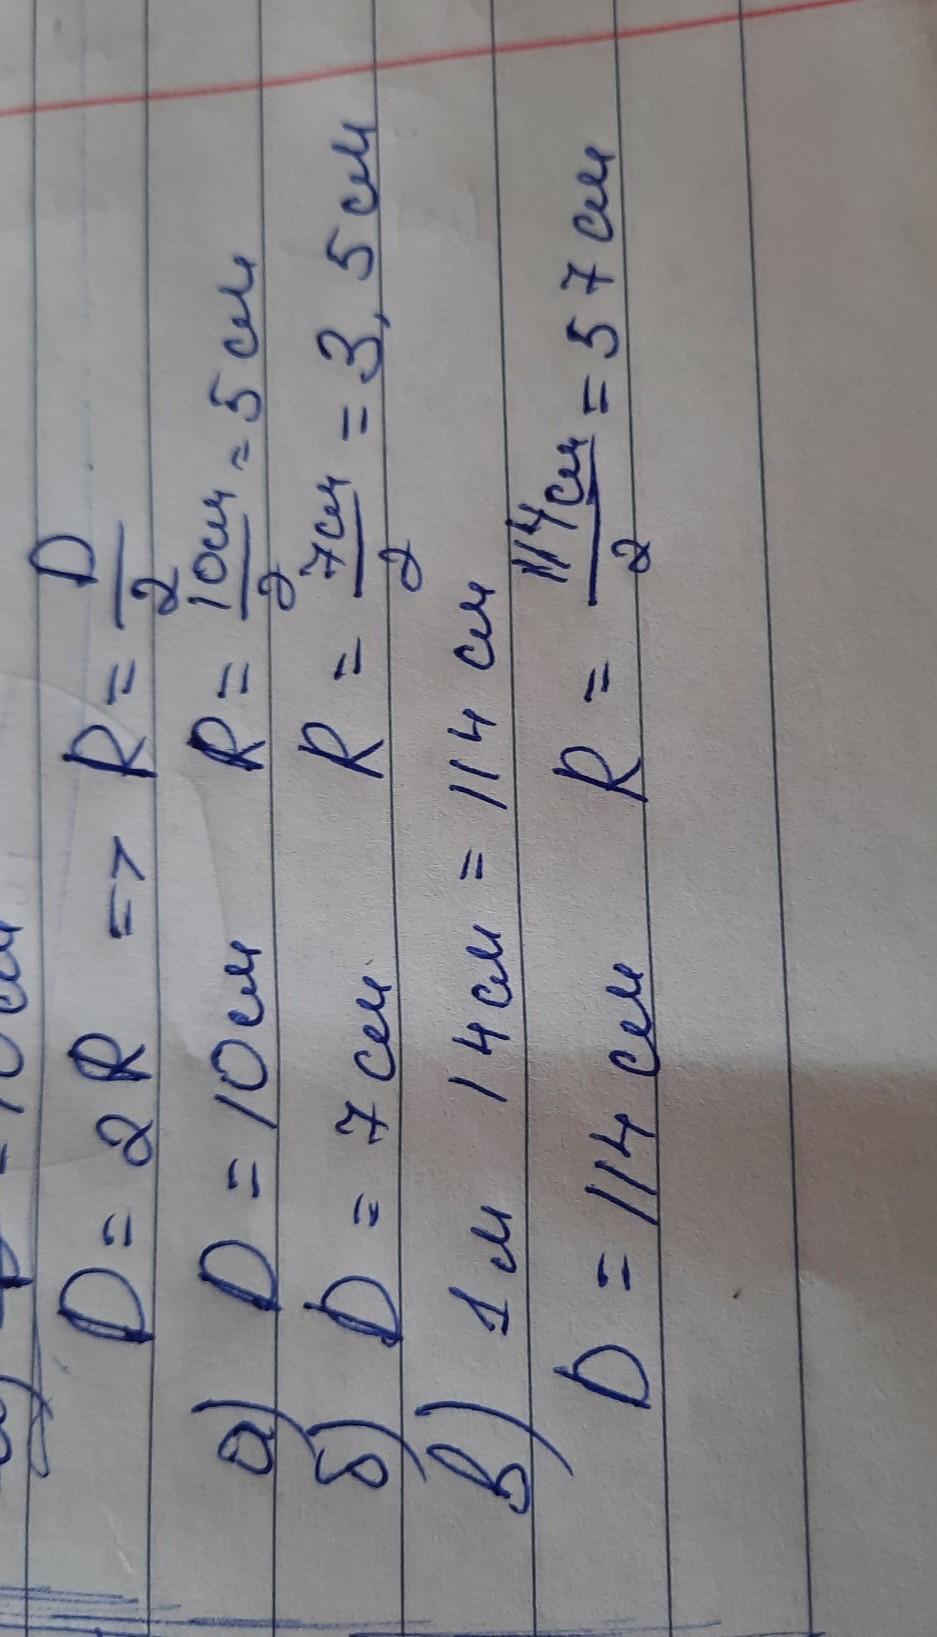 D = 2R => R = D/2
а) D = 10см R = 10см/2 = 5см
б) D = 7см R = 7см/2 = 3,5см
в) 1м 14см = 114см
D = 114см R = 114см/2 = 57см